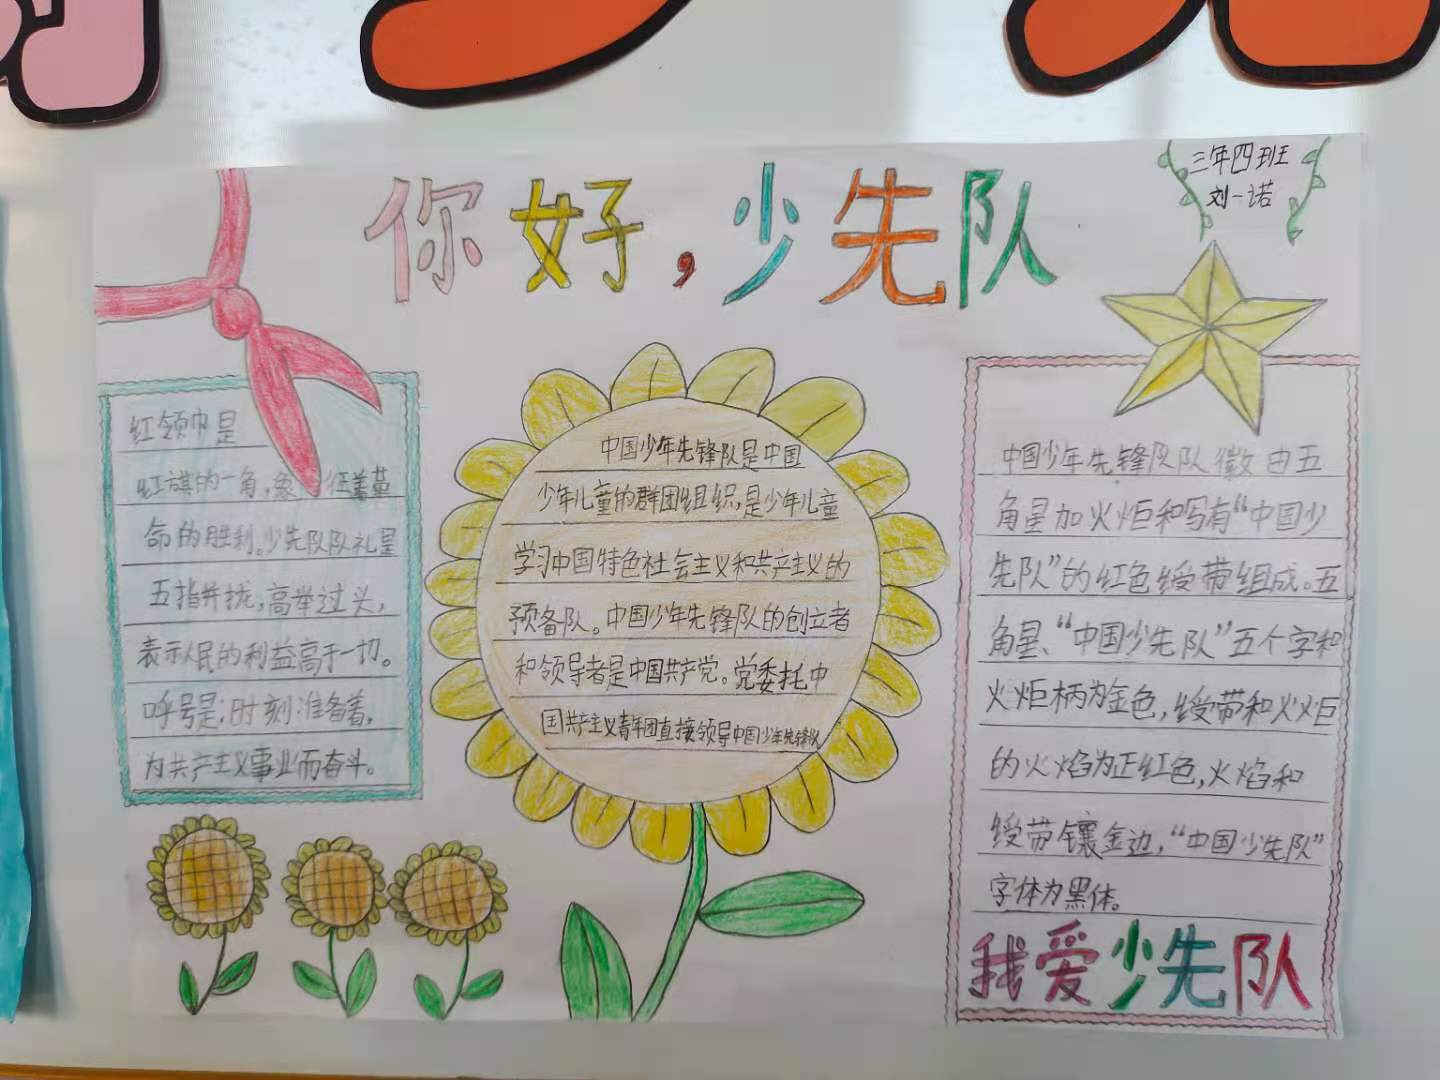 你好,少先队
三年四班
刘一诺
红领巾是
红旗的一角,象征着革
命的胜利。少先队队礼是
五指并拢,高举过头,
表示人民的利益高于一切。
呼号是:时刻准备着,
为共产主义事业而奋斗。
中国少年先锋队是中国
少年儿童的群团组织,是少年儿童
学习中国特色社会主义和共产主义的
预备队。中国少年先锋队的创立者
和领导者是中国共产党。党委托中
国共产主义青年团直接领导中国少年先锋队
中国少年先锋队队徽由五
角星加火炬和写有“中国少
先队”的红色绶带组成。五
角星、“中国少先队”五个字和
火炬柄为金色,绶带和火炬
的火焰为正红色,火焰和
绶带镶金边,“中国少先队”
字体为黑体。
我爱少先队